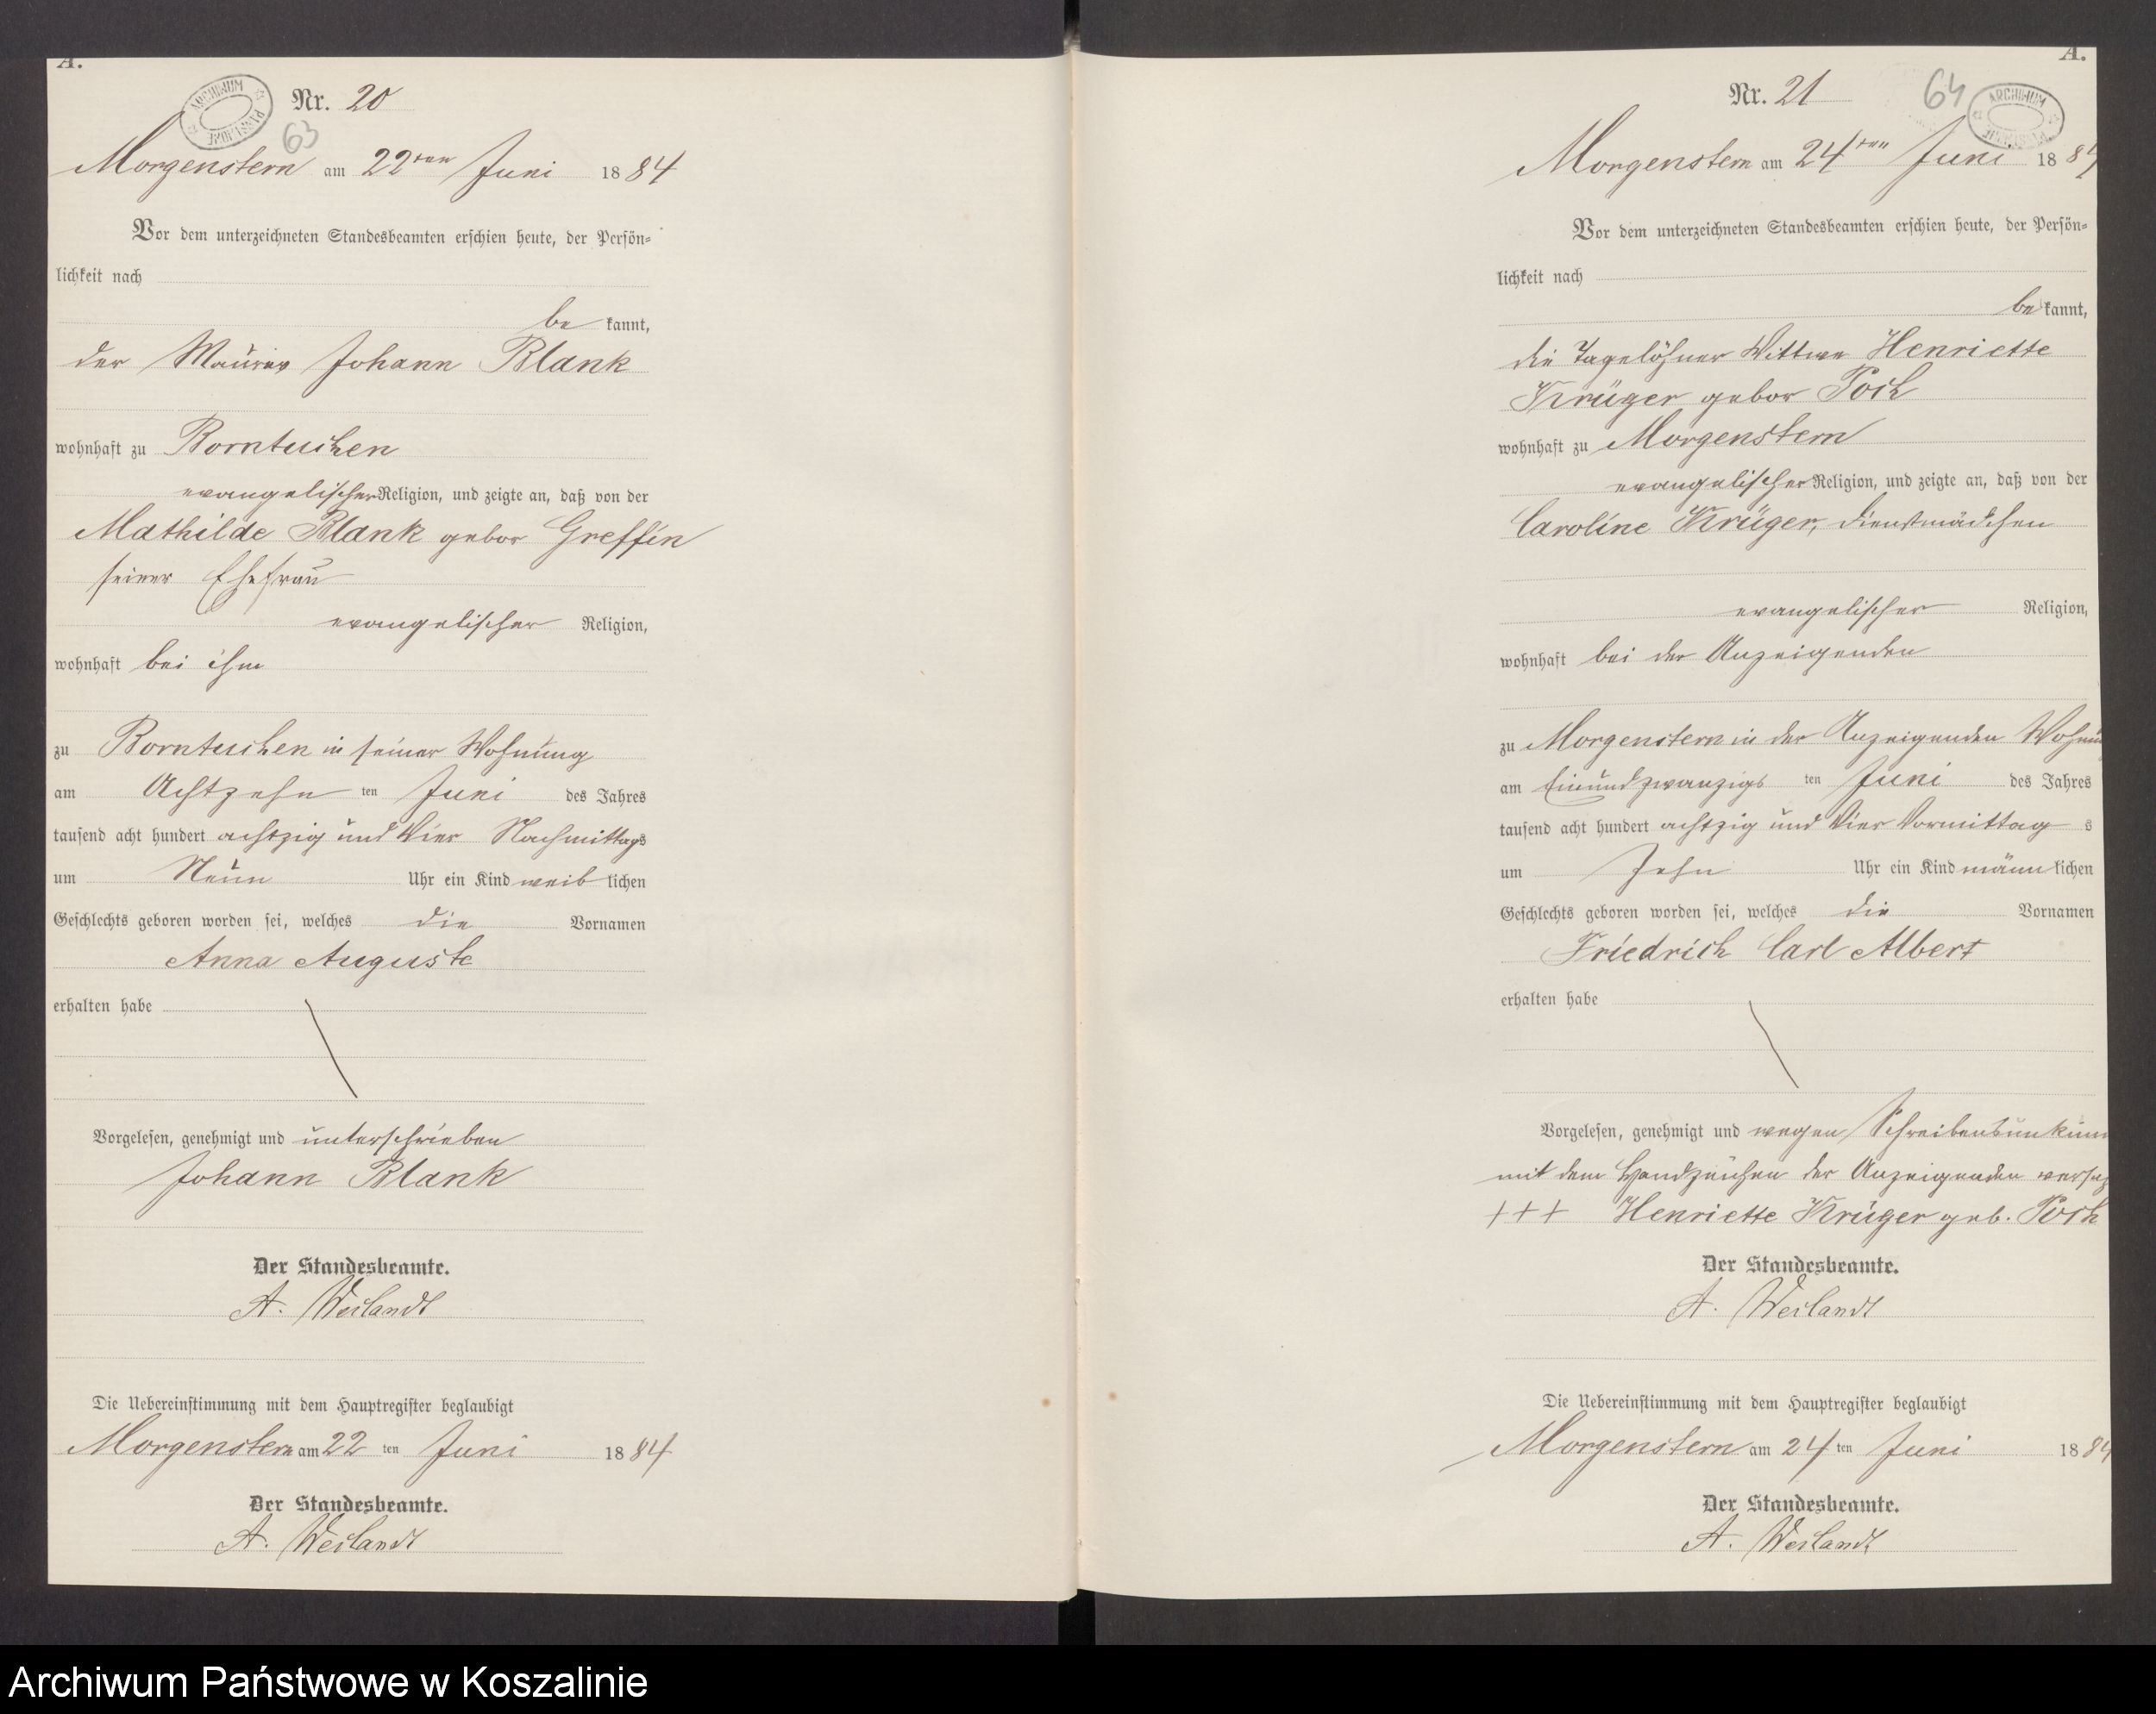 A.
ARCHIWUM PAŃSTWOWE
Nr. 20
63
Morgenstern am 22ten Juni 1884
Vor dem unterzeichneten Standesbeamten erschien heute, der Persön=
lichkeit nach
be kannt,
der Maurer Johann Blank
wohnhaft zu Borntuchen
evangelischer Religion, und zeigte an, daß von der
Mathilde Blank gebor Greffin
seiner Ehefrau
evangelischer Religion,
wohnhaft bei ihm
zu Borntuchen in seiner Wohnung
am Achtzehn ten Juni des Jahres
tausend acht hundert achtzig und Vier Nachmittags
um Neun Uhr ein Kind weib lichen
Geschlechts geboren worden sei, welches die Vornamen
Anna Auguste
erhalten habe
Vorgelesen, genehmigt und unterschrieben
Johann Blank
Der Standesbeamte.
A. Weilandt
Die Uebereinstimmung mit dem Hauptregister beglaubigt
Morgenstern am 22 ten Juni 1884
Der Standesbeamte.
A. Weilandt
A.
Nr. 21
64
ARCHIWUM PAŃSTWOWE
Morgenstern am 24ten Juni 1884
Vor dem unterzeichneten Standesbeamten erschien heute, der Persön=
lichkeit nach
be kannt,
die Tagelöhner Wittwe Henriette
Krüger gebor Poch
wohnhaft zu Morgenstern
evangelischer Religion, und zeigte an, daß von der
Caroline Krüger, Dienstmädchen
evangelischer Religion,
wohnhaft bei der Anzeigenden
zu Morgenstern in der Anzeigenden Wohnun
am Einundzwanzigs ten Juni des Jahres
tausend acht hundert achtzig und Vier Vormittag s
um Zehn Uhr ein Kind männ lichen
Geschlechts geboren worden sei, welches die Vornamen
Friedrich Carl Albert
erhalten habe
Vorgelesen, genehmigt und wegen Schreibensunkun
mit dem Handzeichen der Anzeigenden verseh
+++ Henriette Krüger geb. Poch
Der Standesbeamte.
A. Weilandt
Die Uebereinstimmung mit dem Hauptregister beglaubigt
Morgenstern am 24 ten Juni 1884
Der Standesbeamte.
A. Weilandt
Archiwum Państwowe w Koszalinie